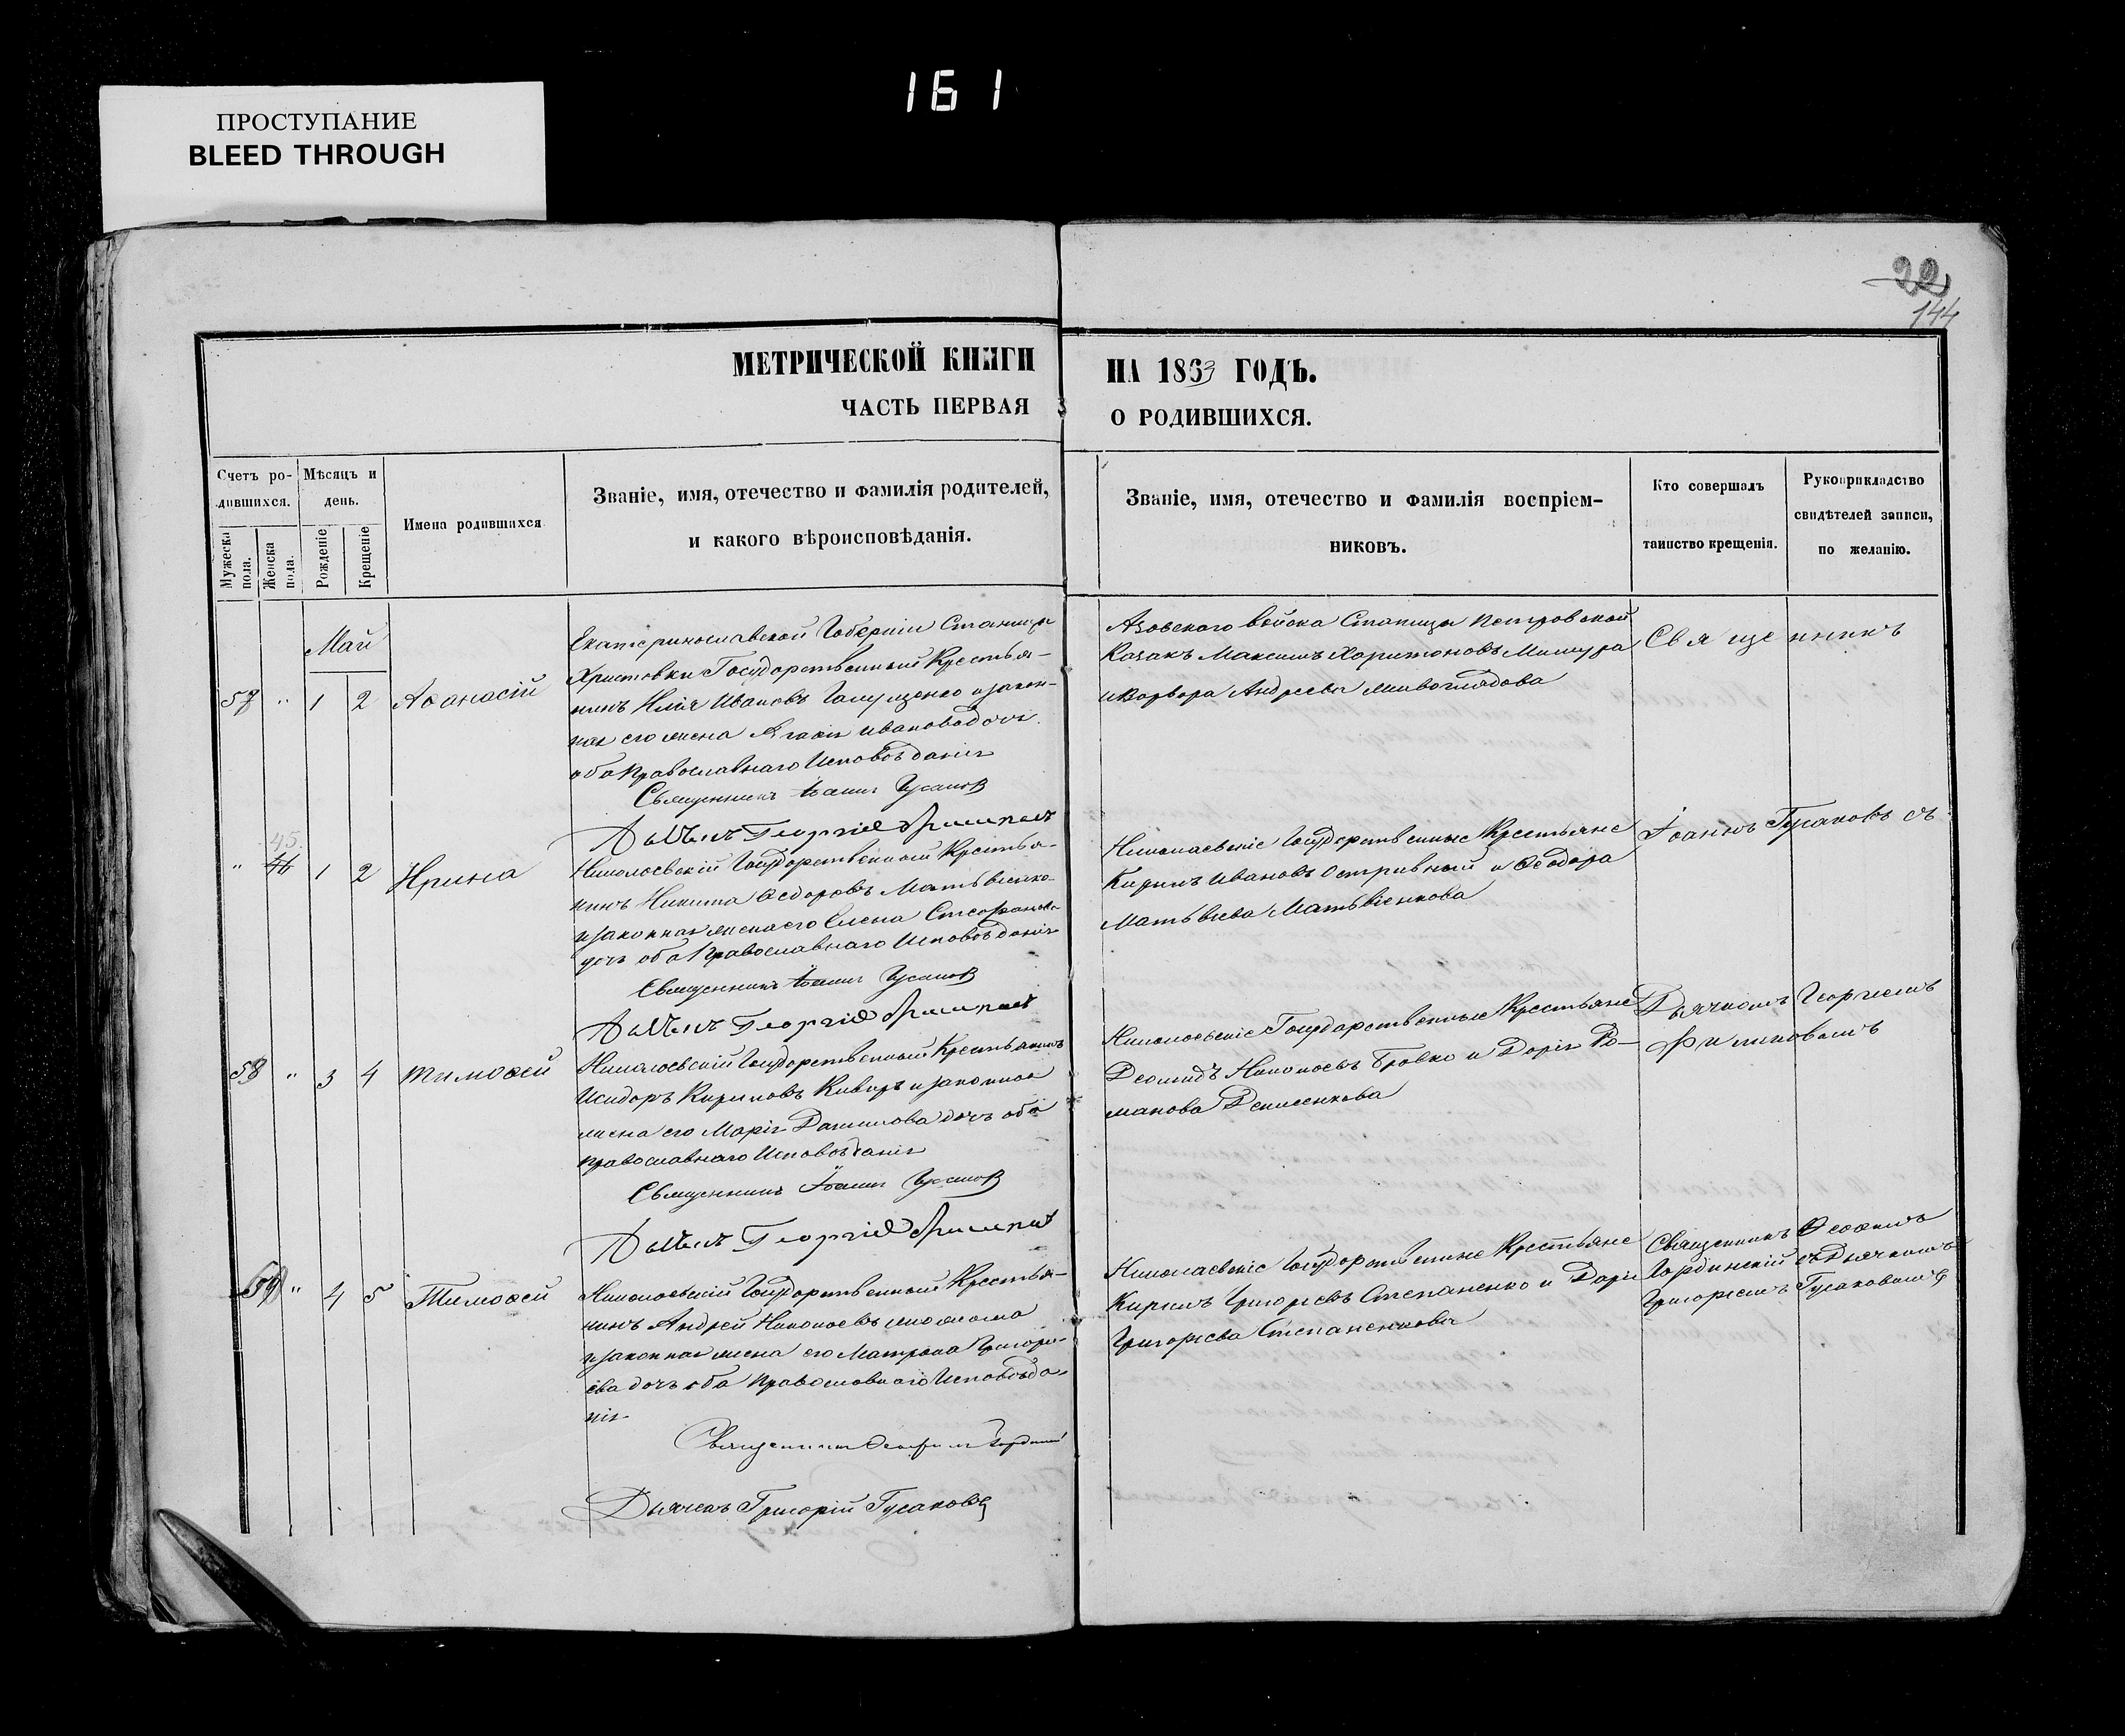 161
ПРОСТУПАНИЕ
BLEED THROUGH
22
144
МЕТРИЧЕСКОЙ КНИГИ НА 1863 ГОДЪ.
ЧАСТЬ ПЕРВАЯ О РОДИВШИХСЯ.
Счетъ родившихся.
Мужеска пола.
Женска пола.
Мѣсяцъ и день.
Рожденіе
Крещеніе
Имена родившихся
Званіе, имя, отечество и фамилія родителей,
и какого вѣроисповѣданія.
Званіе, имя, отечество и фамилія воспріем-
никовъ.
Кто совершалъ
таинство крещенія.
Рукоприкладство
свидѣтелей записи,
по желанію.
Май
57 " 1 2 Аѳанасій
Екатеринославской Губерніи Станицы
Христовки Государственный Крестья-
нинъ Илія Ивановъ и закон-
ная его жена Иванова дочь
оба Православнаго Исповѣданія
Священникъ Іоаннъ Гусаков
Дьячекъ Георгій Филипов
Азовскаго войска Станицы Петровской
Козакъ Максимъ Харитоновъ Мишура
и Варвара Андреева
Священникъ
45
" 46 1 2 Ирина
Николаевскій Государственный Крестья-
нинъ Никита Ѳедоровъ Матвѣенко
и законная жена его Елена Стефанова
дочь оба Православнаго Исповѣданія
Священникъ Іоаннъ Гусаков
Дьячекъ Георгій Филипов
Николаевскіе Государственные Крестьяне
Кирилъ Ивановъ и Ѳеодора
Матвѣева Матвѣенкова
Іоаннъ Гусаковъ съ
58 " 3 4 Тимоѳей
Николаевскій Государственный Крестьянинъ
Исидоръ Кириловъ и законная
жена его Марія Данилова дочь оба
Православнаго Исповѣданія
Священникъ Іоаннъ Гусаков
Дьячекъ Георгій Филипов
Николаевскіе Государственные Крестьяне
Леонидъ Николаевъ Бровко и Дарія Ро-
манова Денисенкова
Дьячкомъ Георгіемъ
Филиповымъ
59 " 4 5 Тимоѳей
Николаевскій Государственный Крестья-
нинъ Андрей Николаевъ
и законная жена его Матрона Григорь-
ева дочь оба Православнаго Исповѣда-
нія
Священникъ Ѳеофилъ Гординскій
Дьячекъ Григорій Гусаковъ
Николаевскіе Государственные Крестьяне
Кирилъ Григорьевъ Степаненко и Дарія
Григорьева Степаненкова
Священникъ Ѳеофилъ
Гординскій съ Дьячкомъ
Григоріемъ Гусаковымъ